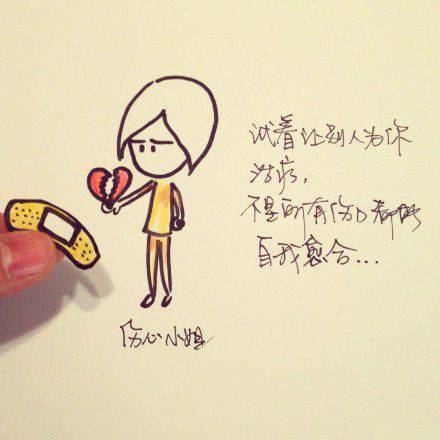 试着让别人为你
治疗，
不是所有伤口都能
自我愈合...
伤心小姐